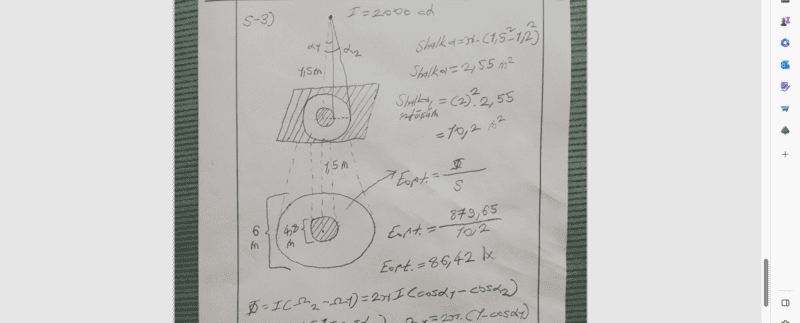 S-3)
I = 2000 cd
α1 α2
1,5 m
Shalka = π·(1,5² - 1,2²)
Shalka = 2,55 m²
Shalka = (2)². 2,55
= 10,2 m²
1,5 m
Eort. = Φ / S
Eort. = 873,65 / 10,2
Eort. = 86,42 lx
6 m
4,8 m
Φ = I(Ω2 - Ω1) = 2π I (cosα1 - cosα2)